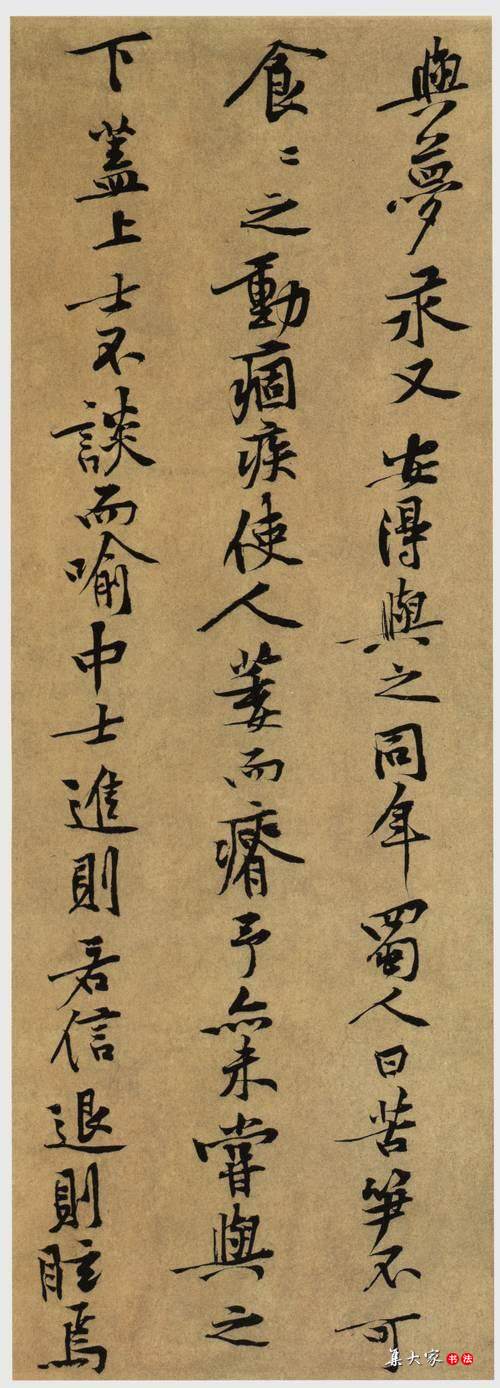 與夢汞又安得與之同年蜀人曰苦笋不可
食〻之動痼疾使人萎而瘠予亦未嘗與之
下蓋上士不談而喻中士進則若信退則眩焉
集大家书法